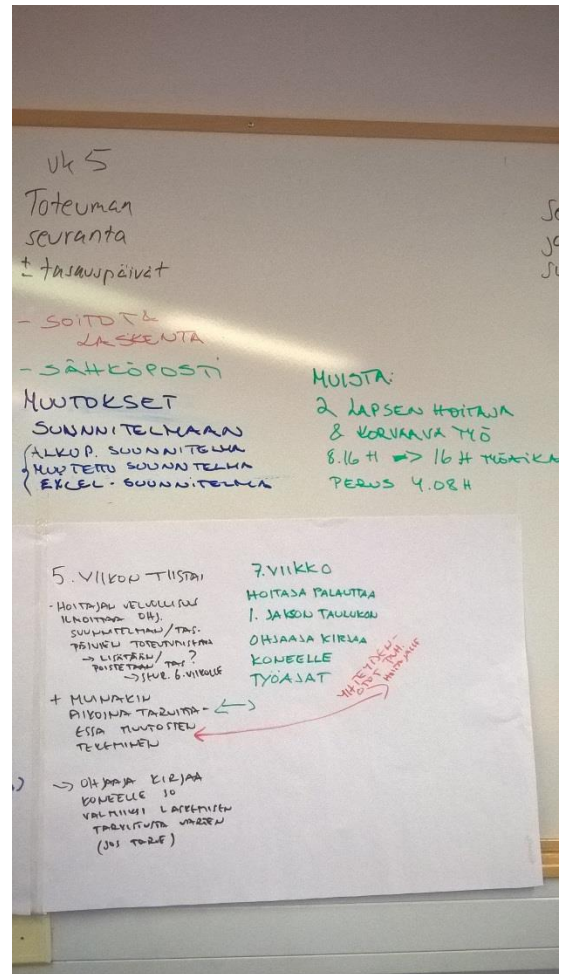 vk 5
Toteuman
seuranta
± tasauspäivät
- SOITOT &
LASKENTA
- SÄHKÖPOSTI
MUUTOKSET
SUNNNITELMAAN
ALKUP. SUUNNITELMA
MUUTETTU SUUNNITELMA
EXCEL - SUUNNITELMA
MUISTA:
2 LAPSEN HOITAJA
& KORVAAVA TYÖ
8.16 H => 16 H TYÖAIKA
PERUS 4.08 H
5. VIIKON TIISTAI
- HOITAJAN VELVOLLISUUS
ILMOITTAA OHJ.
SUUNNITELMAN / TAS.
PÄIVIEN TOTEUTUMISTAAN
→ LISÄTÄÄN /
POISTETAAN TAS ?
→ SEUR. 6. VIIKOLLE
+ MUINAKIN
AIKOINA TARVITTA-
ESSA MUUTOSTEN
TEKEMINEN
→ OHJAAJA KIRJAA
KONEELLE JO
VALMIIKSI LASKEMISEN
TARVITUSTA VARTEN
(JOS TARVE)
7. VIIKKO
HOITAJA PALAUTTAA
1. JAKSON TAULUKON
OHJAAJA KIRJAA
KONEELLE
TYÖAJAT
YHTEYDEN-
OTOT PUH.
HOITAJALLE